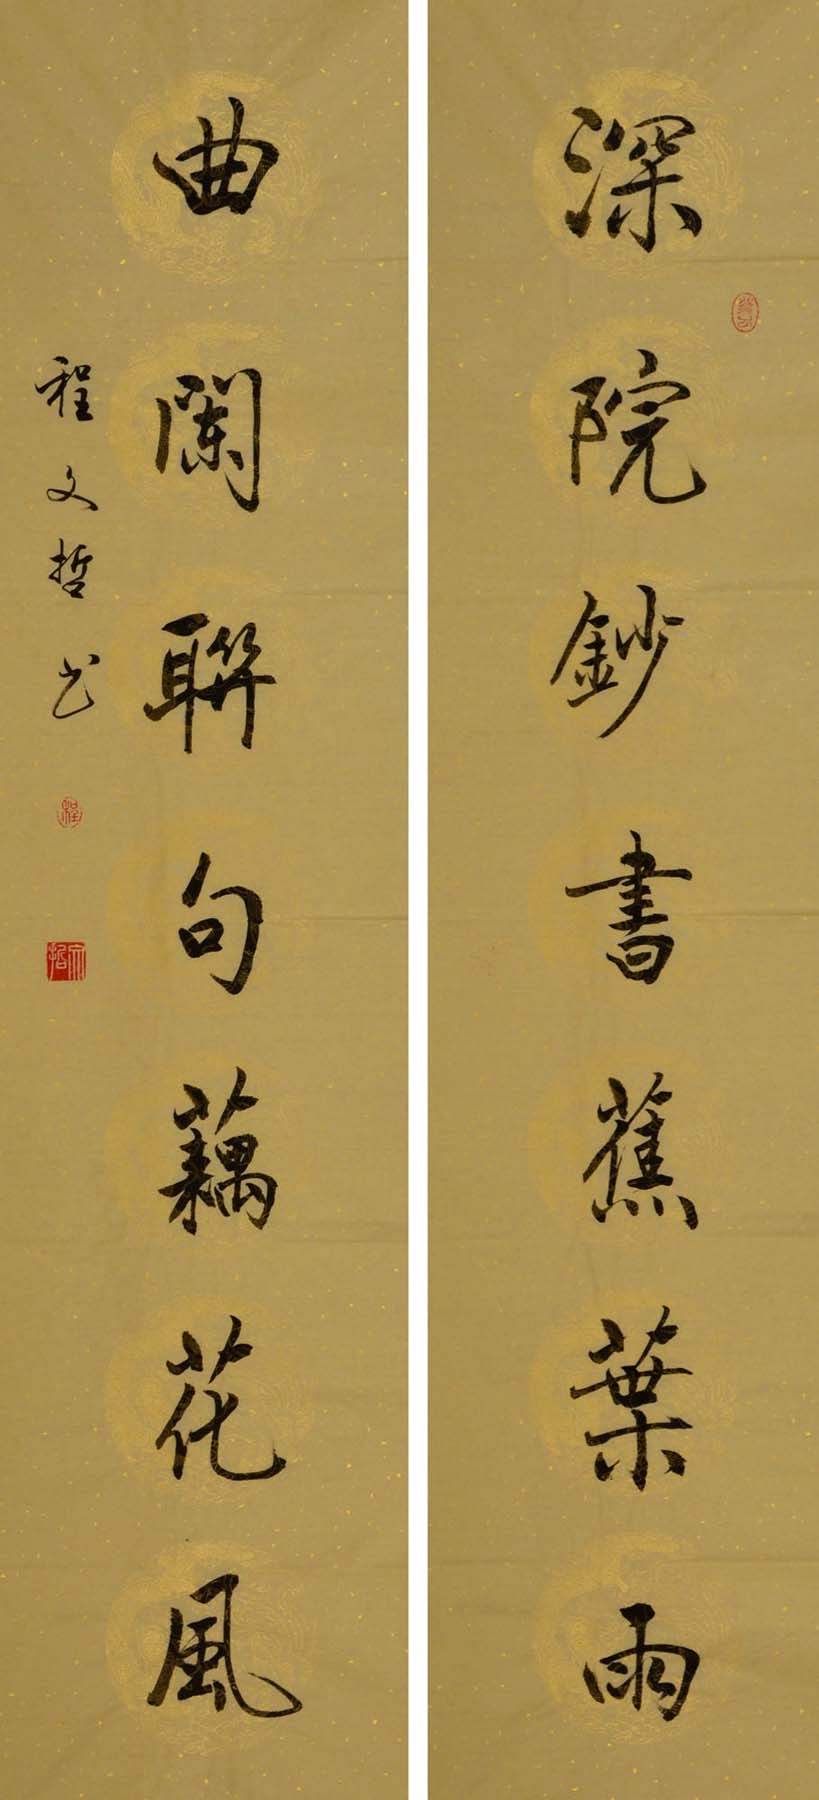 深院鈔書蕉葉雨
曲闌聯句藕花風
程文哲书
程
文哲